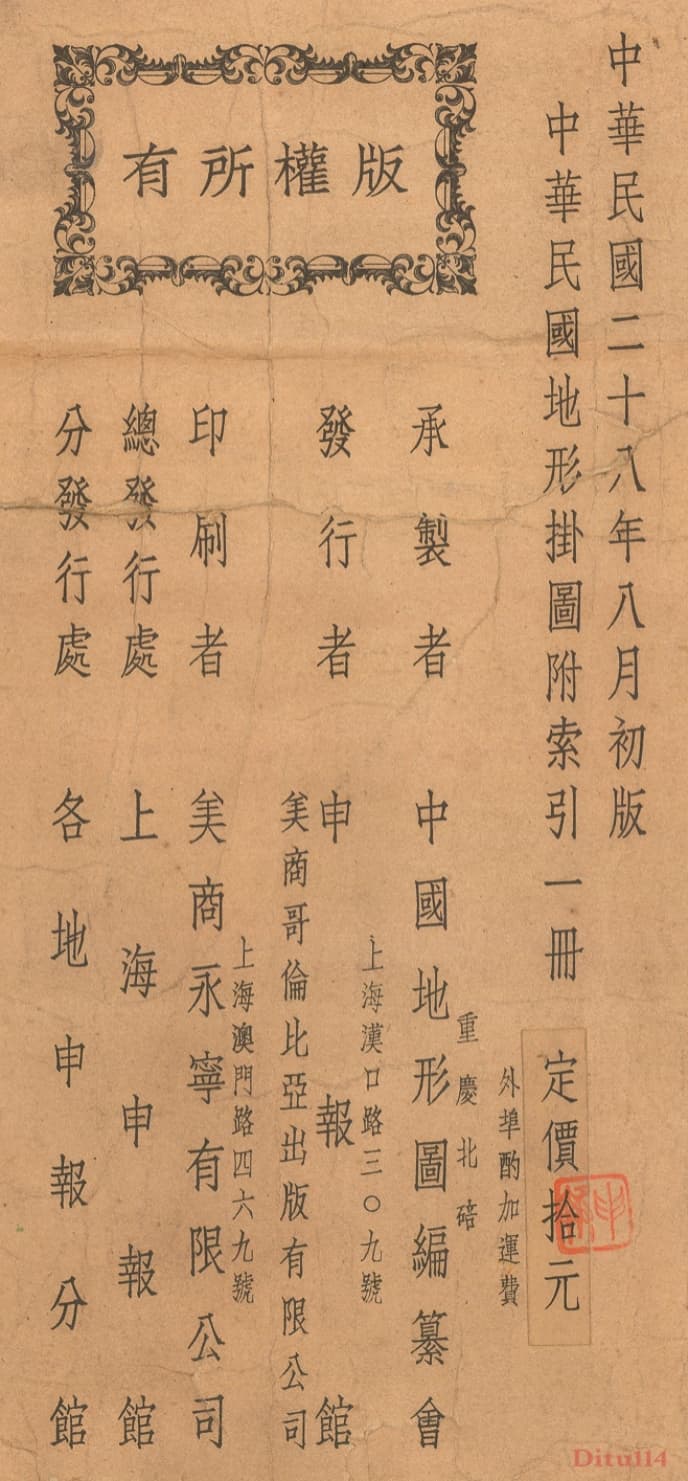 中華民國二十八年八月初版
中華民國地形掛圖附索引一冊
定價拾元
外埠酌加運費
重慶北碚
承製者 中國地形圖編纂會
上海漢口路三〇九號
發行者 申報館
美商哥倫比亞出版有限公司
上海澳門路四六九號
印刷者 美商永寧有限公司
總發行處 上海申報館
分發行處 各地申報分館
版權所有
Ditu114